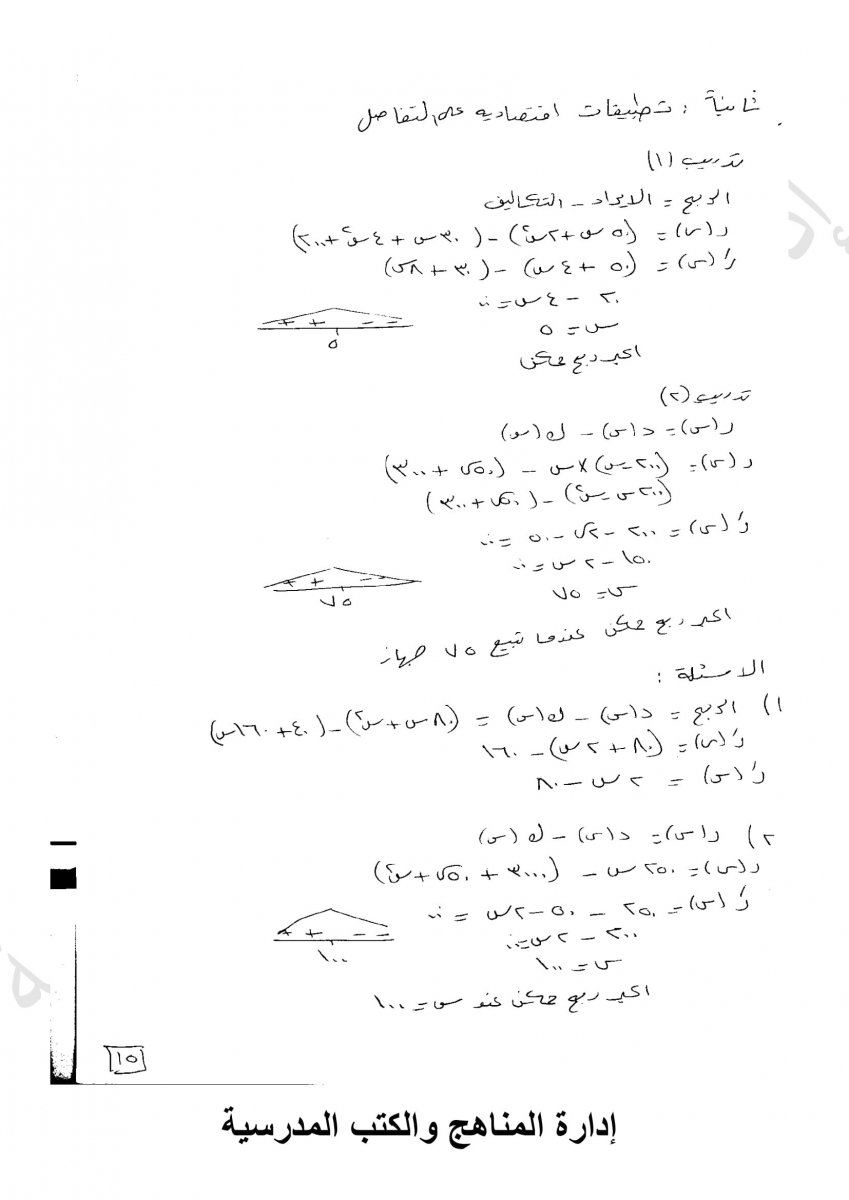 ثانية : تطبيقات اقتصادية على التفاضل
تدريب (١)
الربح = الايراد - التكاليف
ر(س) = (٥٠س + ٢س٢) - (٣٠س + ٤س٢ + ٢٠٠)
رَ(س) = (٥٠ + ٤س) - (٣٠ + ٨س)
٢٠ - ٤س = ٠
س = ٥
+ + - -
٥
اكبر ربح ممكن
تدريب (٢)
ر(س) = د(س) - ك(س)
ر(س) = (٢٠٠ - س) × س - (٥٠س + ٣٠٠)
(٢٠٠س - س٢) - (٥٠س + ٣٠٠)
رَ(س) = ٢٠٠ - ٢س - ٥٠ = ٠
١٥٠ - ٢س = ٠
س = ٧٥
+ + - -
٧٥
اكبر ربح ممكن عندما تبيع ٧٥ جهاز
الاسئلة :
١) الربح = د(س) - ك(س) = (٨٠س + س٢) - (٤٠ + ١٦٠س)
رَ(س) = (٨٠ + ٢س) - ١٦٠
رَ(س) = ٢س - ٨٠
٢) ر(س) = د(س) - ك(س)
ر(س) = ٢٥٠س - (٣٠٠٠ + ٥٠س + س٢)
رَ(س) = ٢٥٠ - ٥٠ - ٢س = ٠
٢٠٠ - ٢س = ٠
س = ١٠٠
+ + - -
١٠٠
اكبر ربح ممكن عند س = ١٠٠
١٥
إدارة المناهج والكتب المدرسية